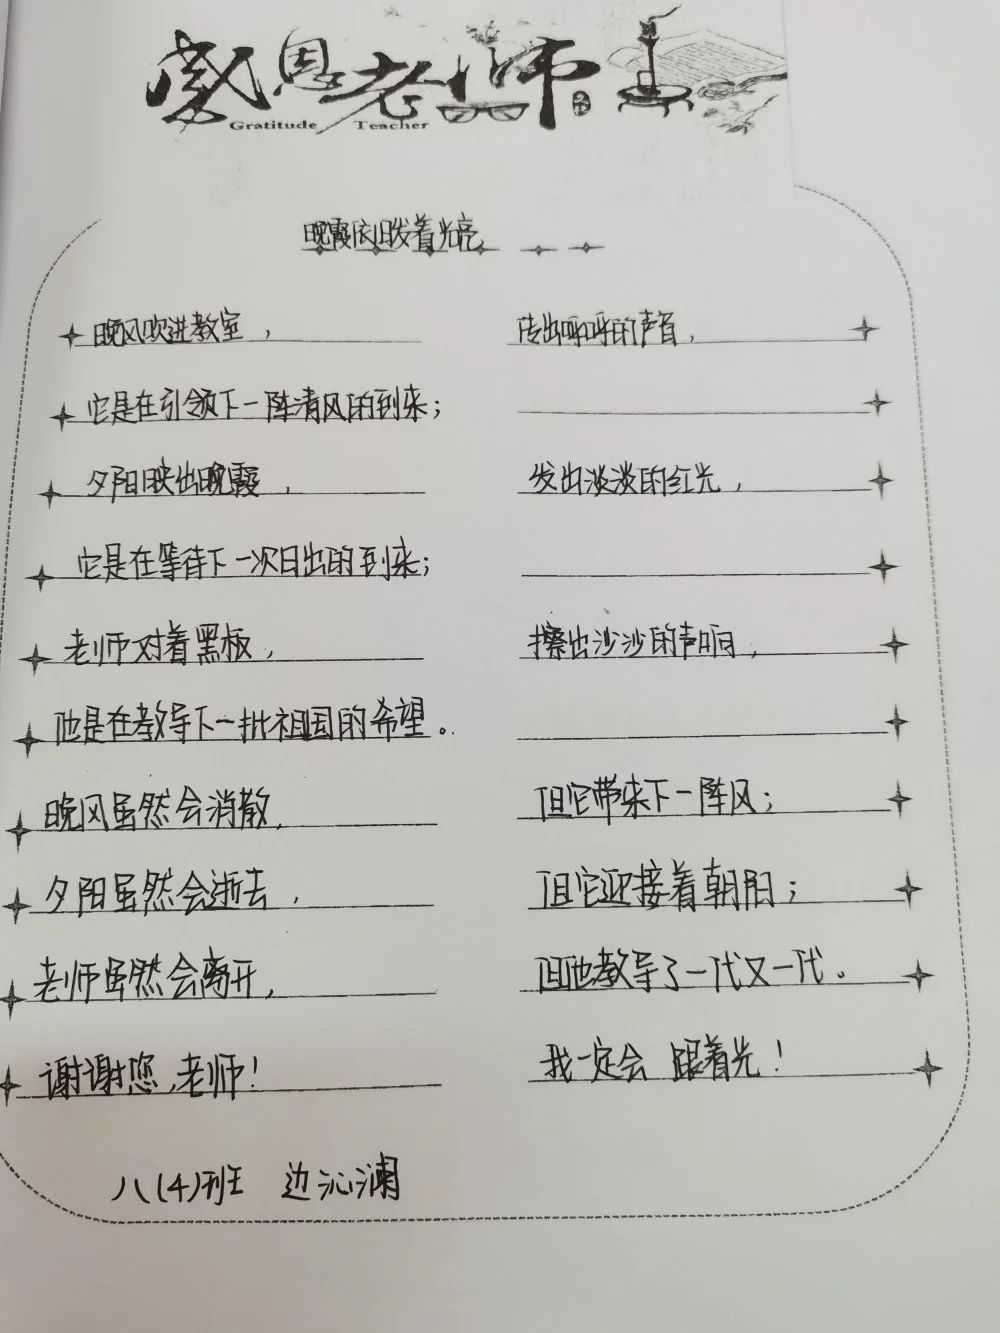 感恩老师
Gratitude Teacher
晚霞依旧发着光亮
晚风吹进教室， 传出呼呼的声音，
它是在引领下一阵清风的到来；
夕阳映出晚霞， 发出淡淡的红光，
它是在等待下一次日出的到来；
老师对着黑板， 擦出沙沙的声响，
他是在教导下一批祖国的希望。
晚风虽然会消散， 但它带来下一阵风；
夕阳虽然会逝去， 但它迎接着朝阳；
老师虽然会离开， 但他教导了一代又一代。
谢谢您，老师！ 我一定会 跟着光！
八(4)班 边沁澜